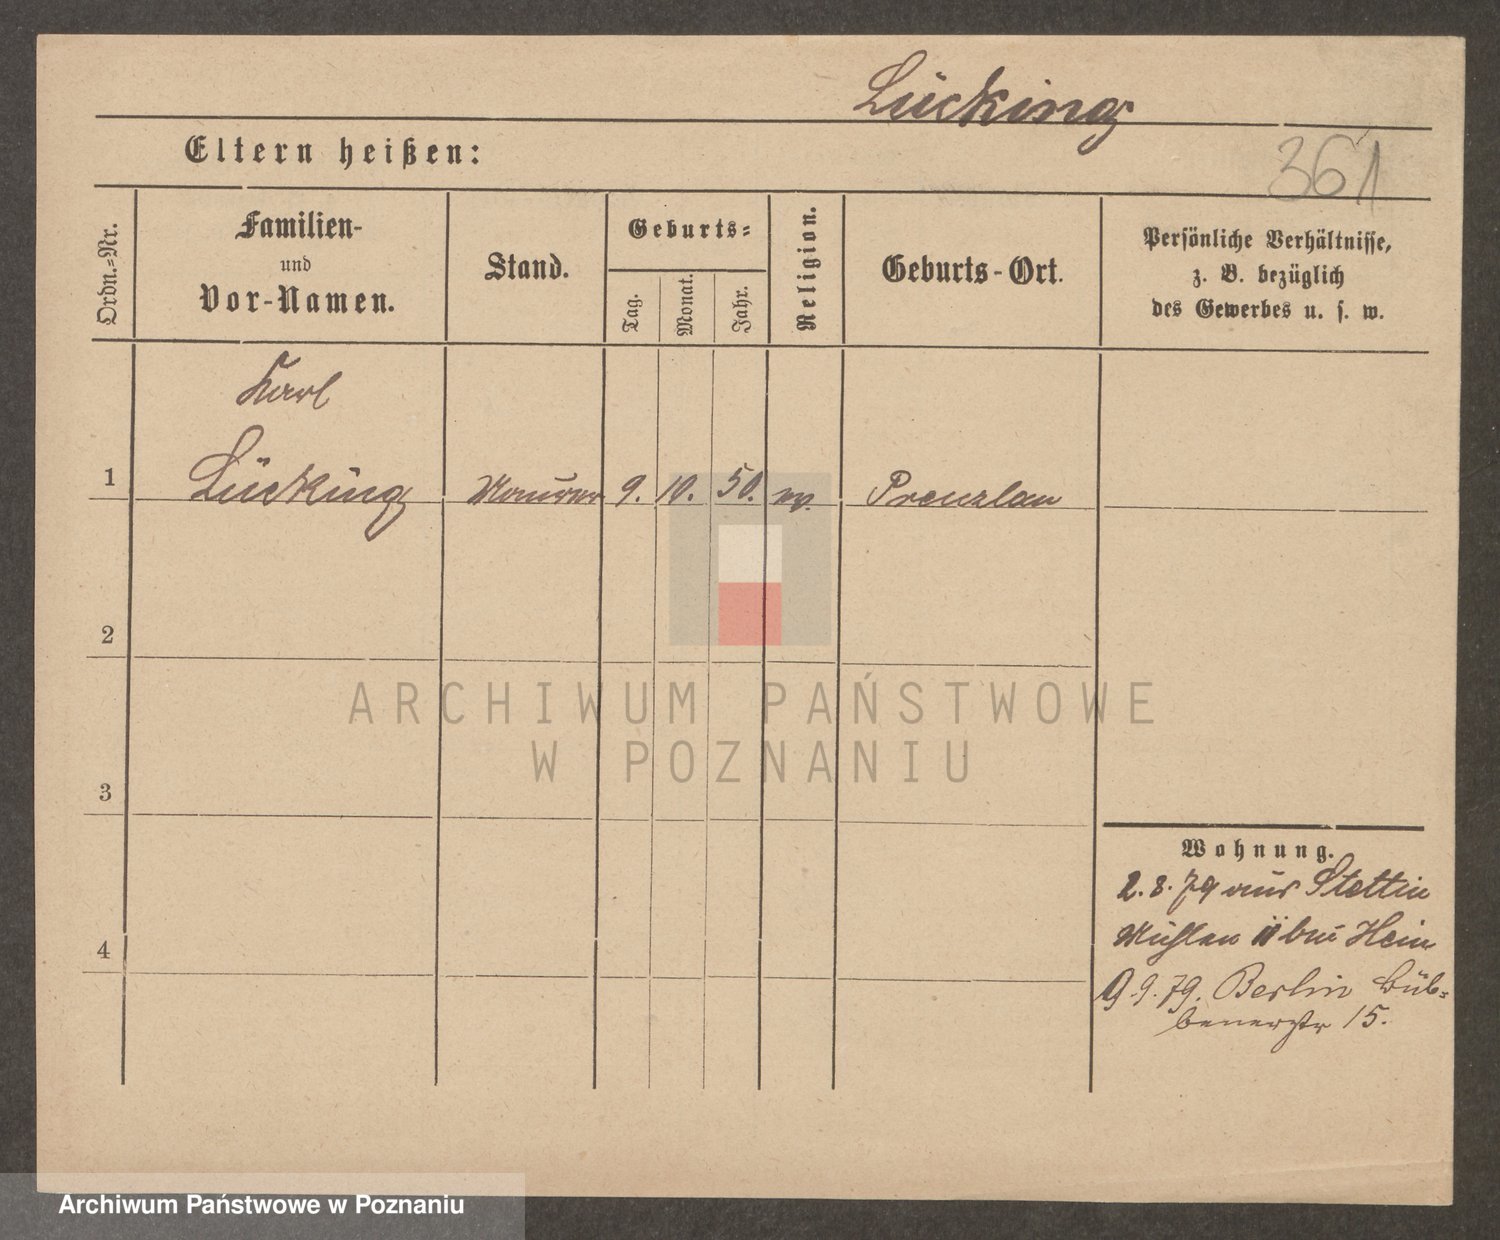 Lücking
Eltern heißen:
361
Ordn.=Nr.
Familien-
und
Vor-Namen.
Stand.
Geburts=
Tag.
Monat.
Jahr.
Religion.
Geburts-Ort.
Persönliche Verhältnisse,
z. B. bezüglich
des Gewerbes u. s. w.
Karl
1 Lücking Maurer 9. 10. 50. ev. Prenzlau
2
ARCHIWUM PAŃSTWOWE
W POZNANIU
3
Wohnung.
2. 8. 79 aus Stettin
Mühlen 11 bei Hein
4
9. 9. 79. Berlin Büb=
benerstr 15.
Archiwum Państwowe w Poznaniu